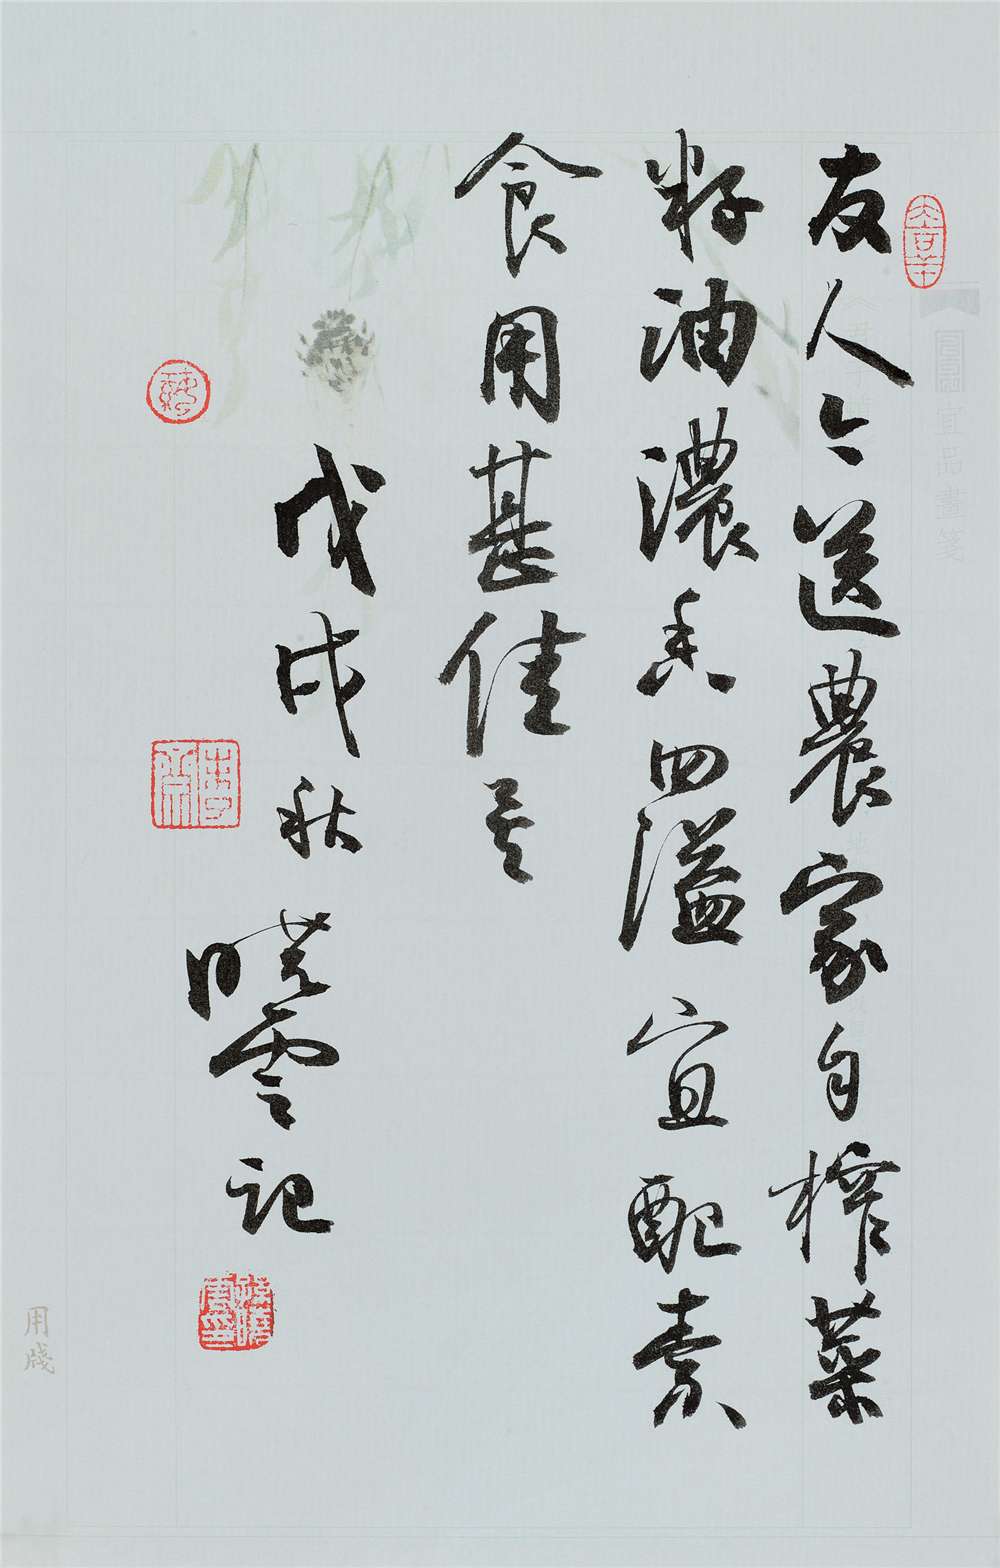 友人送農家自榨菜
籽油濃香四溢宜配素
食用甚佳矣
戊戌秋曉雲記
宜品畫箋
用牋